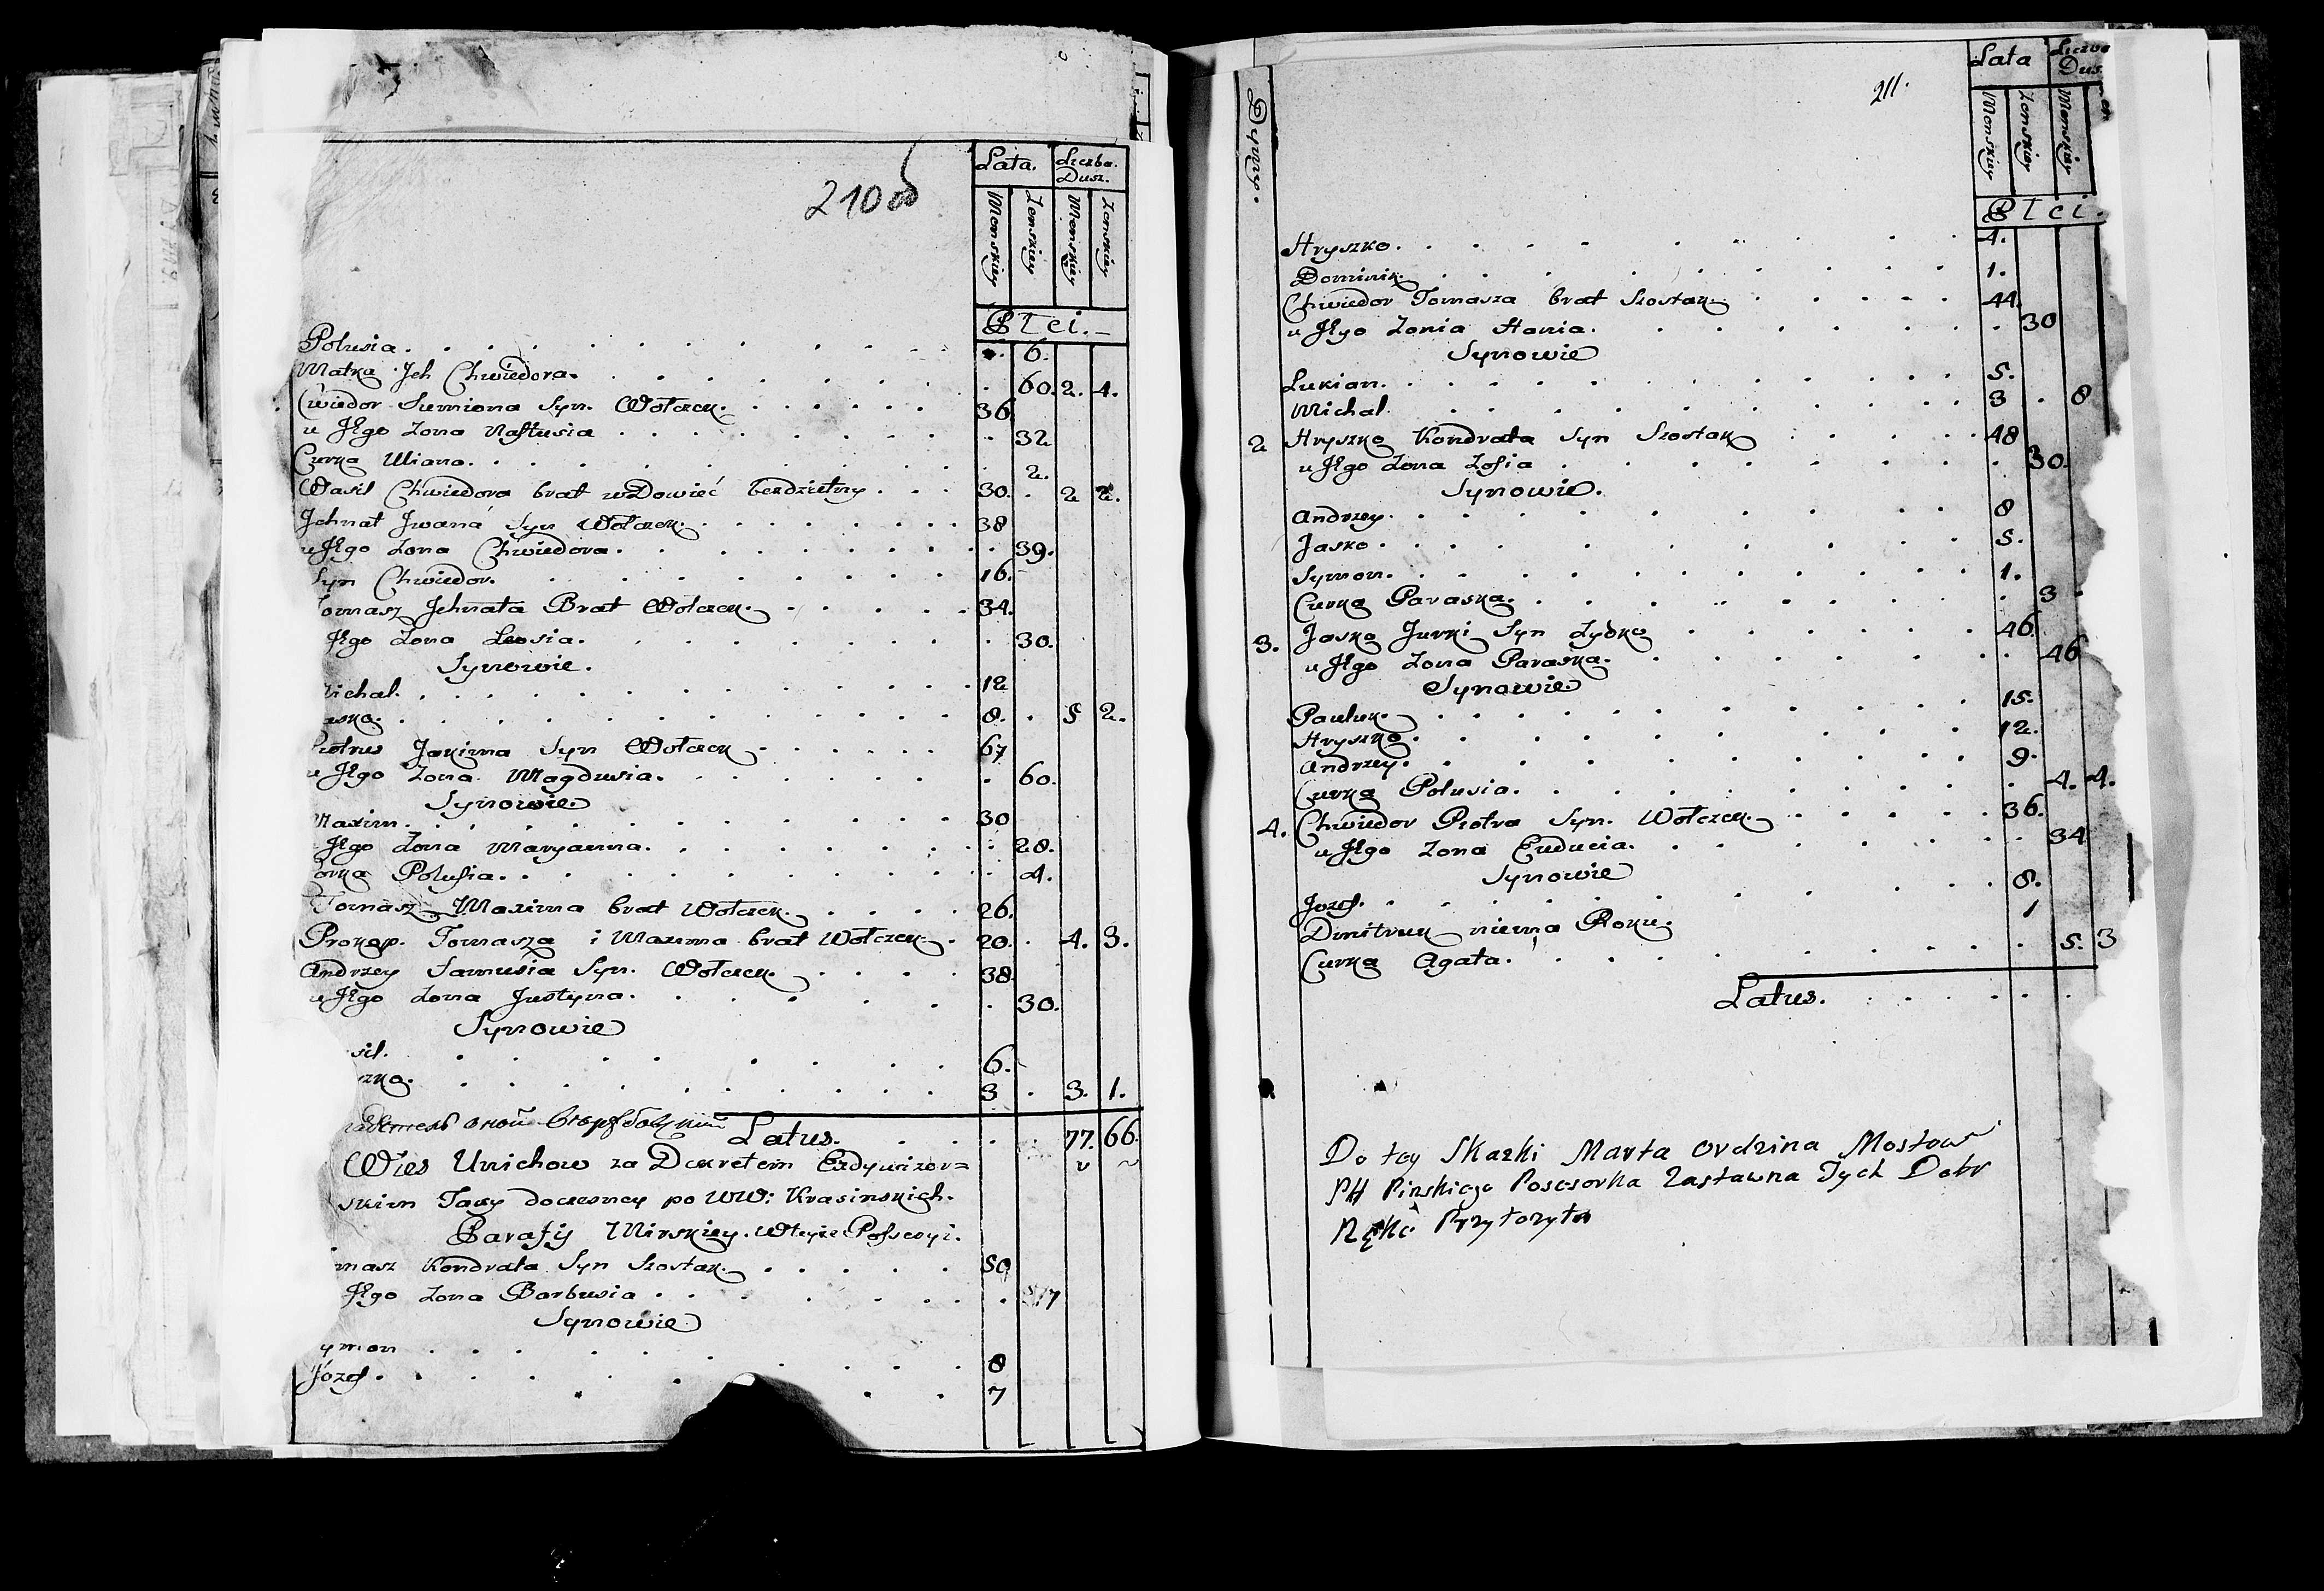 210 об
Lata. Liczba Dusz.
Męnskiey Zenskiey Męnskiey Zenskiey
Płci.
Polusia. 6.
Matka Jch Chwiedora. 60. 2. 4.
Cwiedor Siemiona Syn. Wołczek. 36
u JEgo Zona Nastusia 32
Curka Uliana. 2.
Wasil Chwiedora brat wdowieć bezdzietny 30. 2 2.
Jchnat Jwana Syn Wołczek. 38
u JEgo Zona Chwiedora. 39.
Syn Chwiedor. 16.
omasz Jchnata Brat Wołczek. 34.
JEgo Zona Lewsia. 30.
Synowie.
ichal. 12
asko. 8. 5 2.
iotrus Jakima Syn Wołczek 67
u JEgo Zona Magdusia. 60.
Synowie
Maxim. 30
JEgo Zona Maryanna. 28.
orka Polusia. 4.
Tomasz Maxima brat Wołczek. 26.
Prokop. Tomasza i Maxima brat Wołczek. 20. 4. 3.
Andrzey Samusia Syn. Wołczek. 38.
u JEgo Zona Justyna. 30.
Synowie
sil. 6.
szko. 3 3. 1.
Latus. 77. 66.
Wies Unichow za Dekretem Exdywizor=
skim Taxy doczesney po WW: Krasinskich.
Parafij Mirskiey. Wteyże Possesyi.
masz Kondrata Syn Szostak 50
JEgo Zona Barbusia 17
Synowie
ymon 8
Józef. 7
211.
Dymy.
Lata Liczba Dus.
Męnskiey Zenskiey Męnskiey
Płci.
Hryszko. 4.
Dominik. 1.
Chwiedor Tomasza brat Szostak 44.
u JEgo Zonia Hania. 30
Synowie
Lukian. 5.
Michal. 3 8
2 Hryszko Kondrata Syn Szostak 48
u JEgo Zona Zofia 30.
Synowie.
Andrzey. 8
Jasko. 5.
Symon. 1.
Curka Paraska. 3
3. Jasko Jurki Syn Zydko 46.
u JEgo Zona Paraska. 46
Synowie
Pauluk. 15.
Hryszko. 12.
Andrzey. 9.
Curka Polusia. 4. 4.
4. Chwiedor Piotra Syn. Wołczek. 36.
u JEgo Zona Euducia. 34
Synowie
Jozef. 8.
Dmitruk niema Roku. 1
Curka Agata. 5. 3
Latus.
Do tey Skazki Marta Ordzina Mostow
PH Pinskiego Posesorka Zastawna Tych Dobr
Rękę Przyłozyła